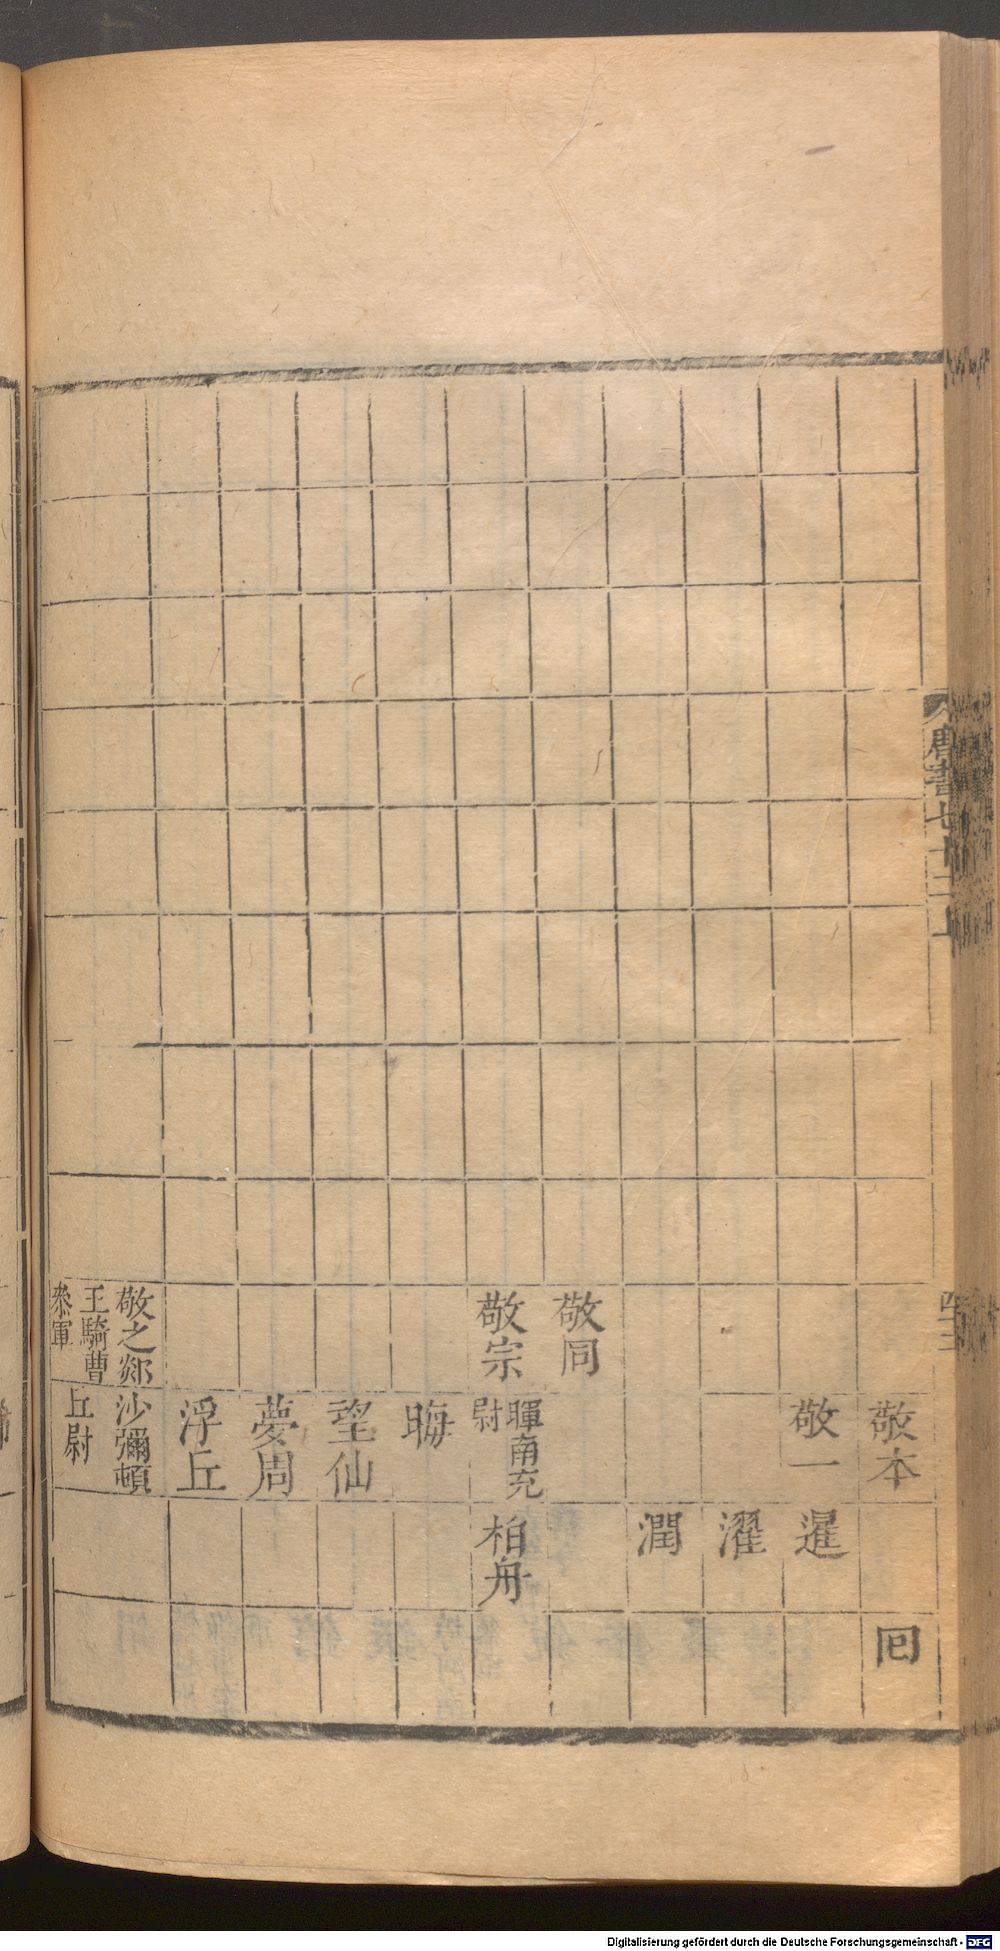 唐書七十二上
四三
敬本
囘
敬一
暹
濯
潤
敬同
敬宗
暉南充
尉
柏舟
晦
望仙
夢周
浮丘
敬之郯
王騎曹
叅軍
沙彌頓
丘尉
Digitalisierung gefördert durch die Deutsche Forschungsgemeinschaft - DFG